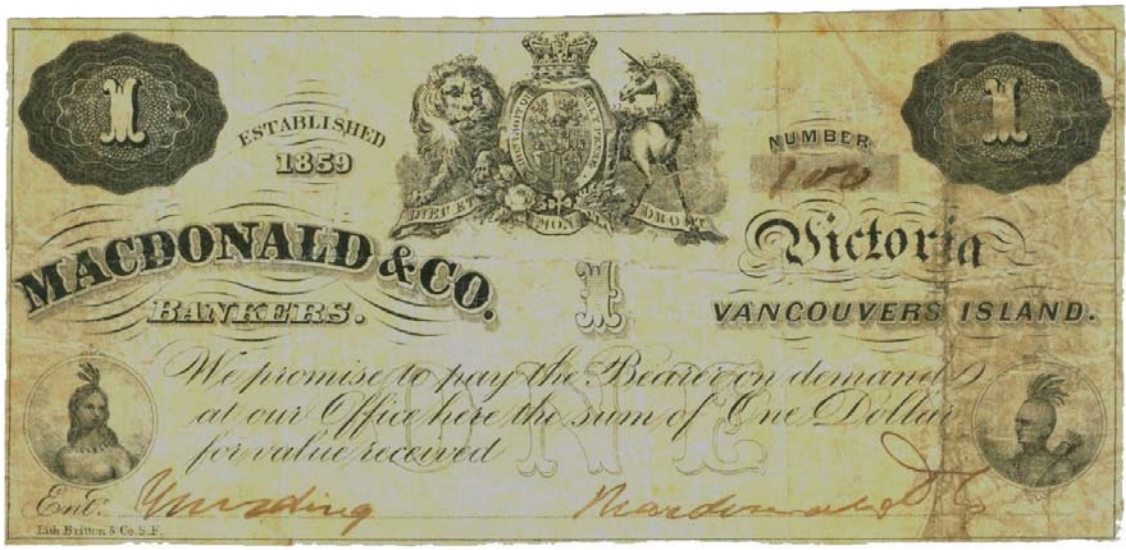 1
1
ESTABLISHED
1859
HONI SOIT QUI MAL Y PENSE
DIEU ET MON DROIT
NUMBER
100
MACDONALD & CO.
BANKERS.
1
Victoria
VANCOUVERS ISLAND.
ONE
We promise to pay the Bearer on demand
at our Office here the sum of One Dollar
for value received
Ent.
Macdonald & Co
Lith Britton & Co. S.F.